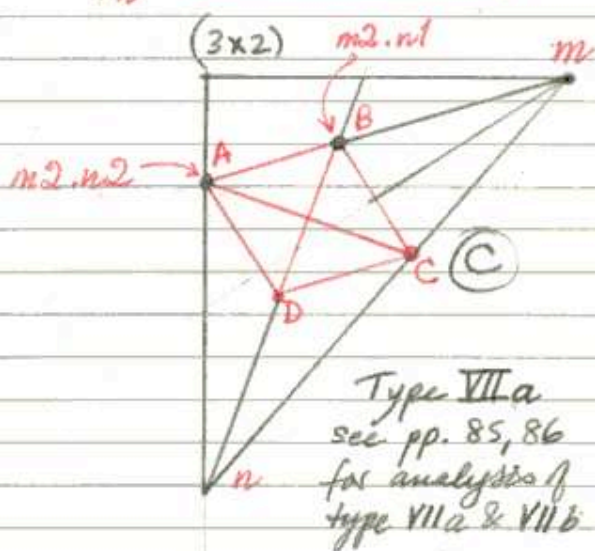 (3x2)
m2.n1
m
B
A
m2.n2
C
C
D
Type VIIa
see pp. 85, 86
n
for analysis of
type VIIa & VIIb